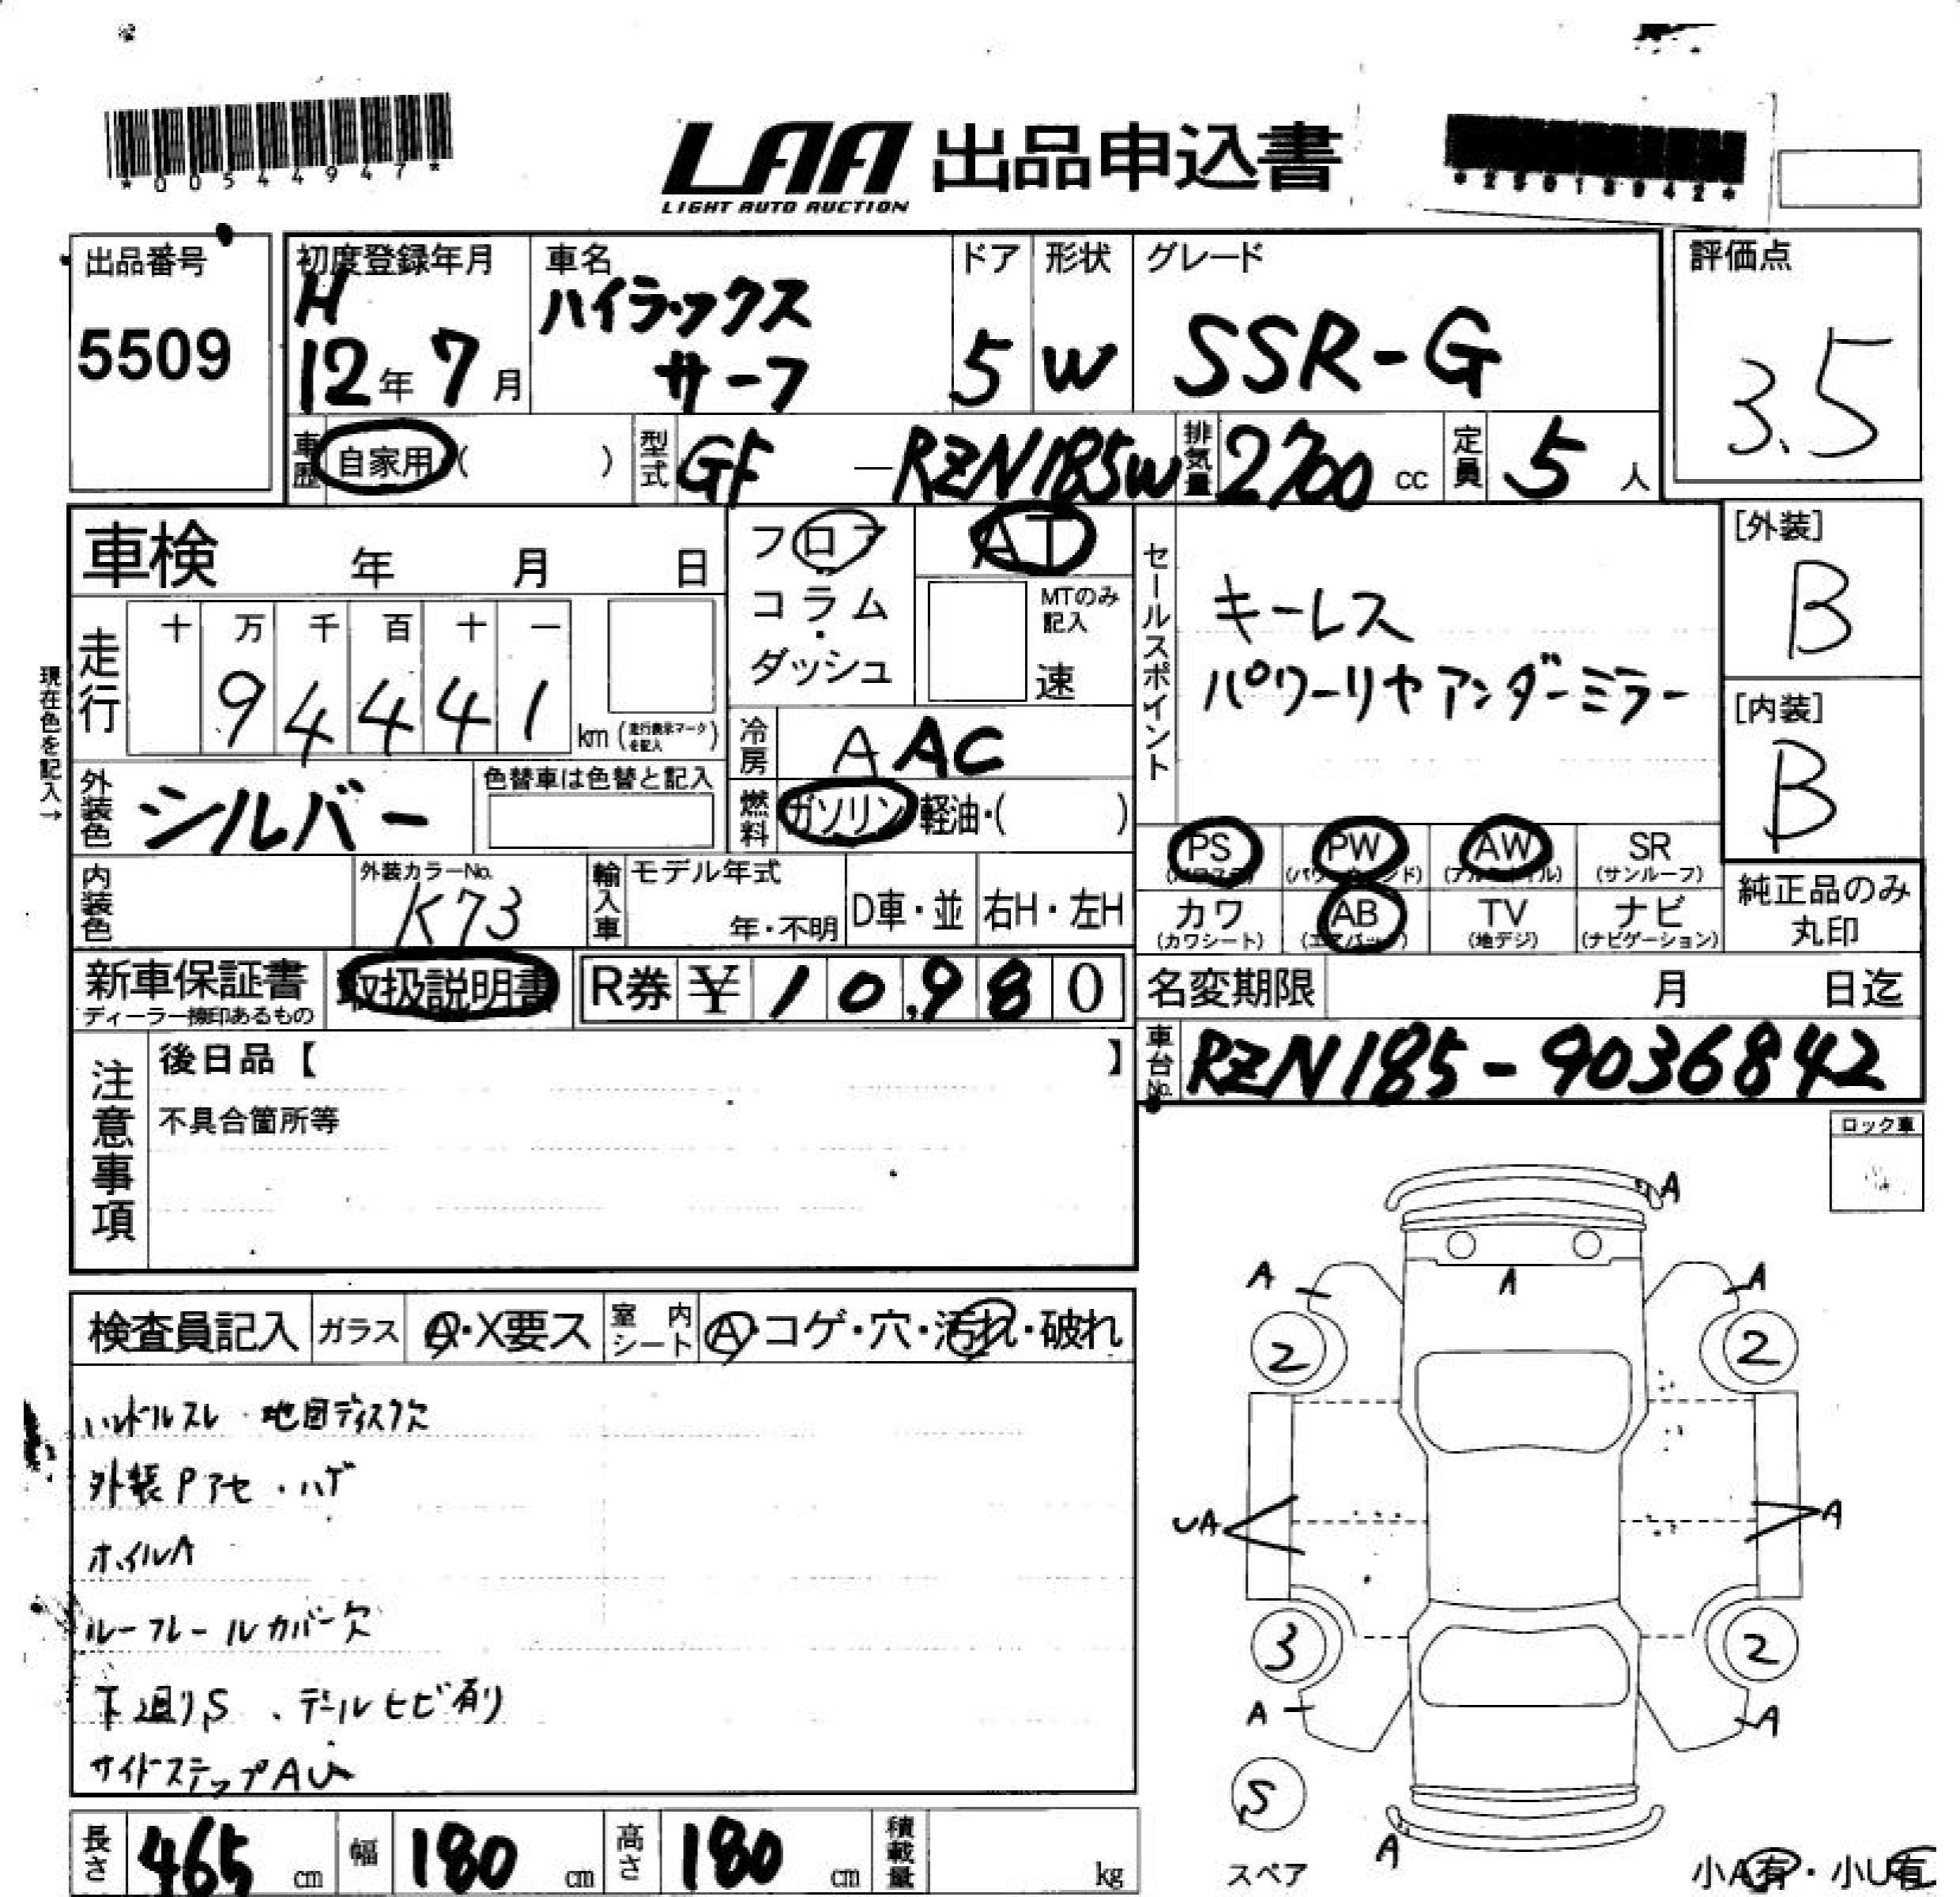 *00544947*
LAA 出品申込書
LIGHT AUTO AUCTION
出品番号
5509
初度登録年月
H
12年 7月
車名
ハイラックス
サーフ
ドア
5
形状
W
グレード
SSR-G
評価点
3.5
車歴
自家用 ( )
型式
GF — RZN185W
排気量
2700 cc
定員
5 人
車検 年 月 日
走行
十 万 千 百 十 一
9 4 4 4 1
km (走行表示マークを記入)
現在色を記入→
外装色
シルバー
色替車は色替と記入
内装色
外装カラーNo.
K73
フロア
コラム
・
ダッシュ
AT
MTのみ
記入
速
冷房
A AC
燃料
ガソリン 軽油・( )
輸入車
モデル年式
年・不明
D車・並
右H・左H
セールスポイント
キーレス
パワーリヤアンダーミラー
[外装]
B
[内装]
B
PS
PW
AW
SR
(サンルーフ)
カワ
(カワシート)
AB
TV
(地デジ)
ナビ
(ナビゲーション)
純正品のみ
丸印
新車保証書
ディーラー捺印あるもの
取扱説明書
R券 ¥ 1 0,9 8 0
名変期限 月 日迄
車台No.
RZN185-9036842
注意事項
後日品【 】
不具合箇所等
ロック車
検査員記入
ガラス
A・X要ス
室内シート
A・コゲ・穴・汚れ・破れ
ハンドルスレ・地図ディスク欠
外装Pアセ・ハゲ
ホイルA
ルーフレールカバー欠
下廻りS、デールヒビ有り
サイドステップAU
A
A
A
A
2
2
UA
A
3
2
A
A
S
スペア
A
小A有・小U有
長さ
465 cm
幅
180 cm
高さ
180 cm
積載量
kg